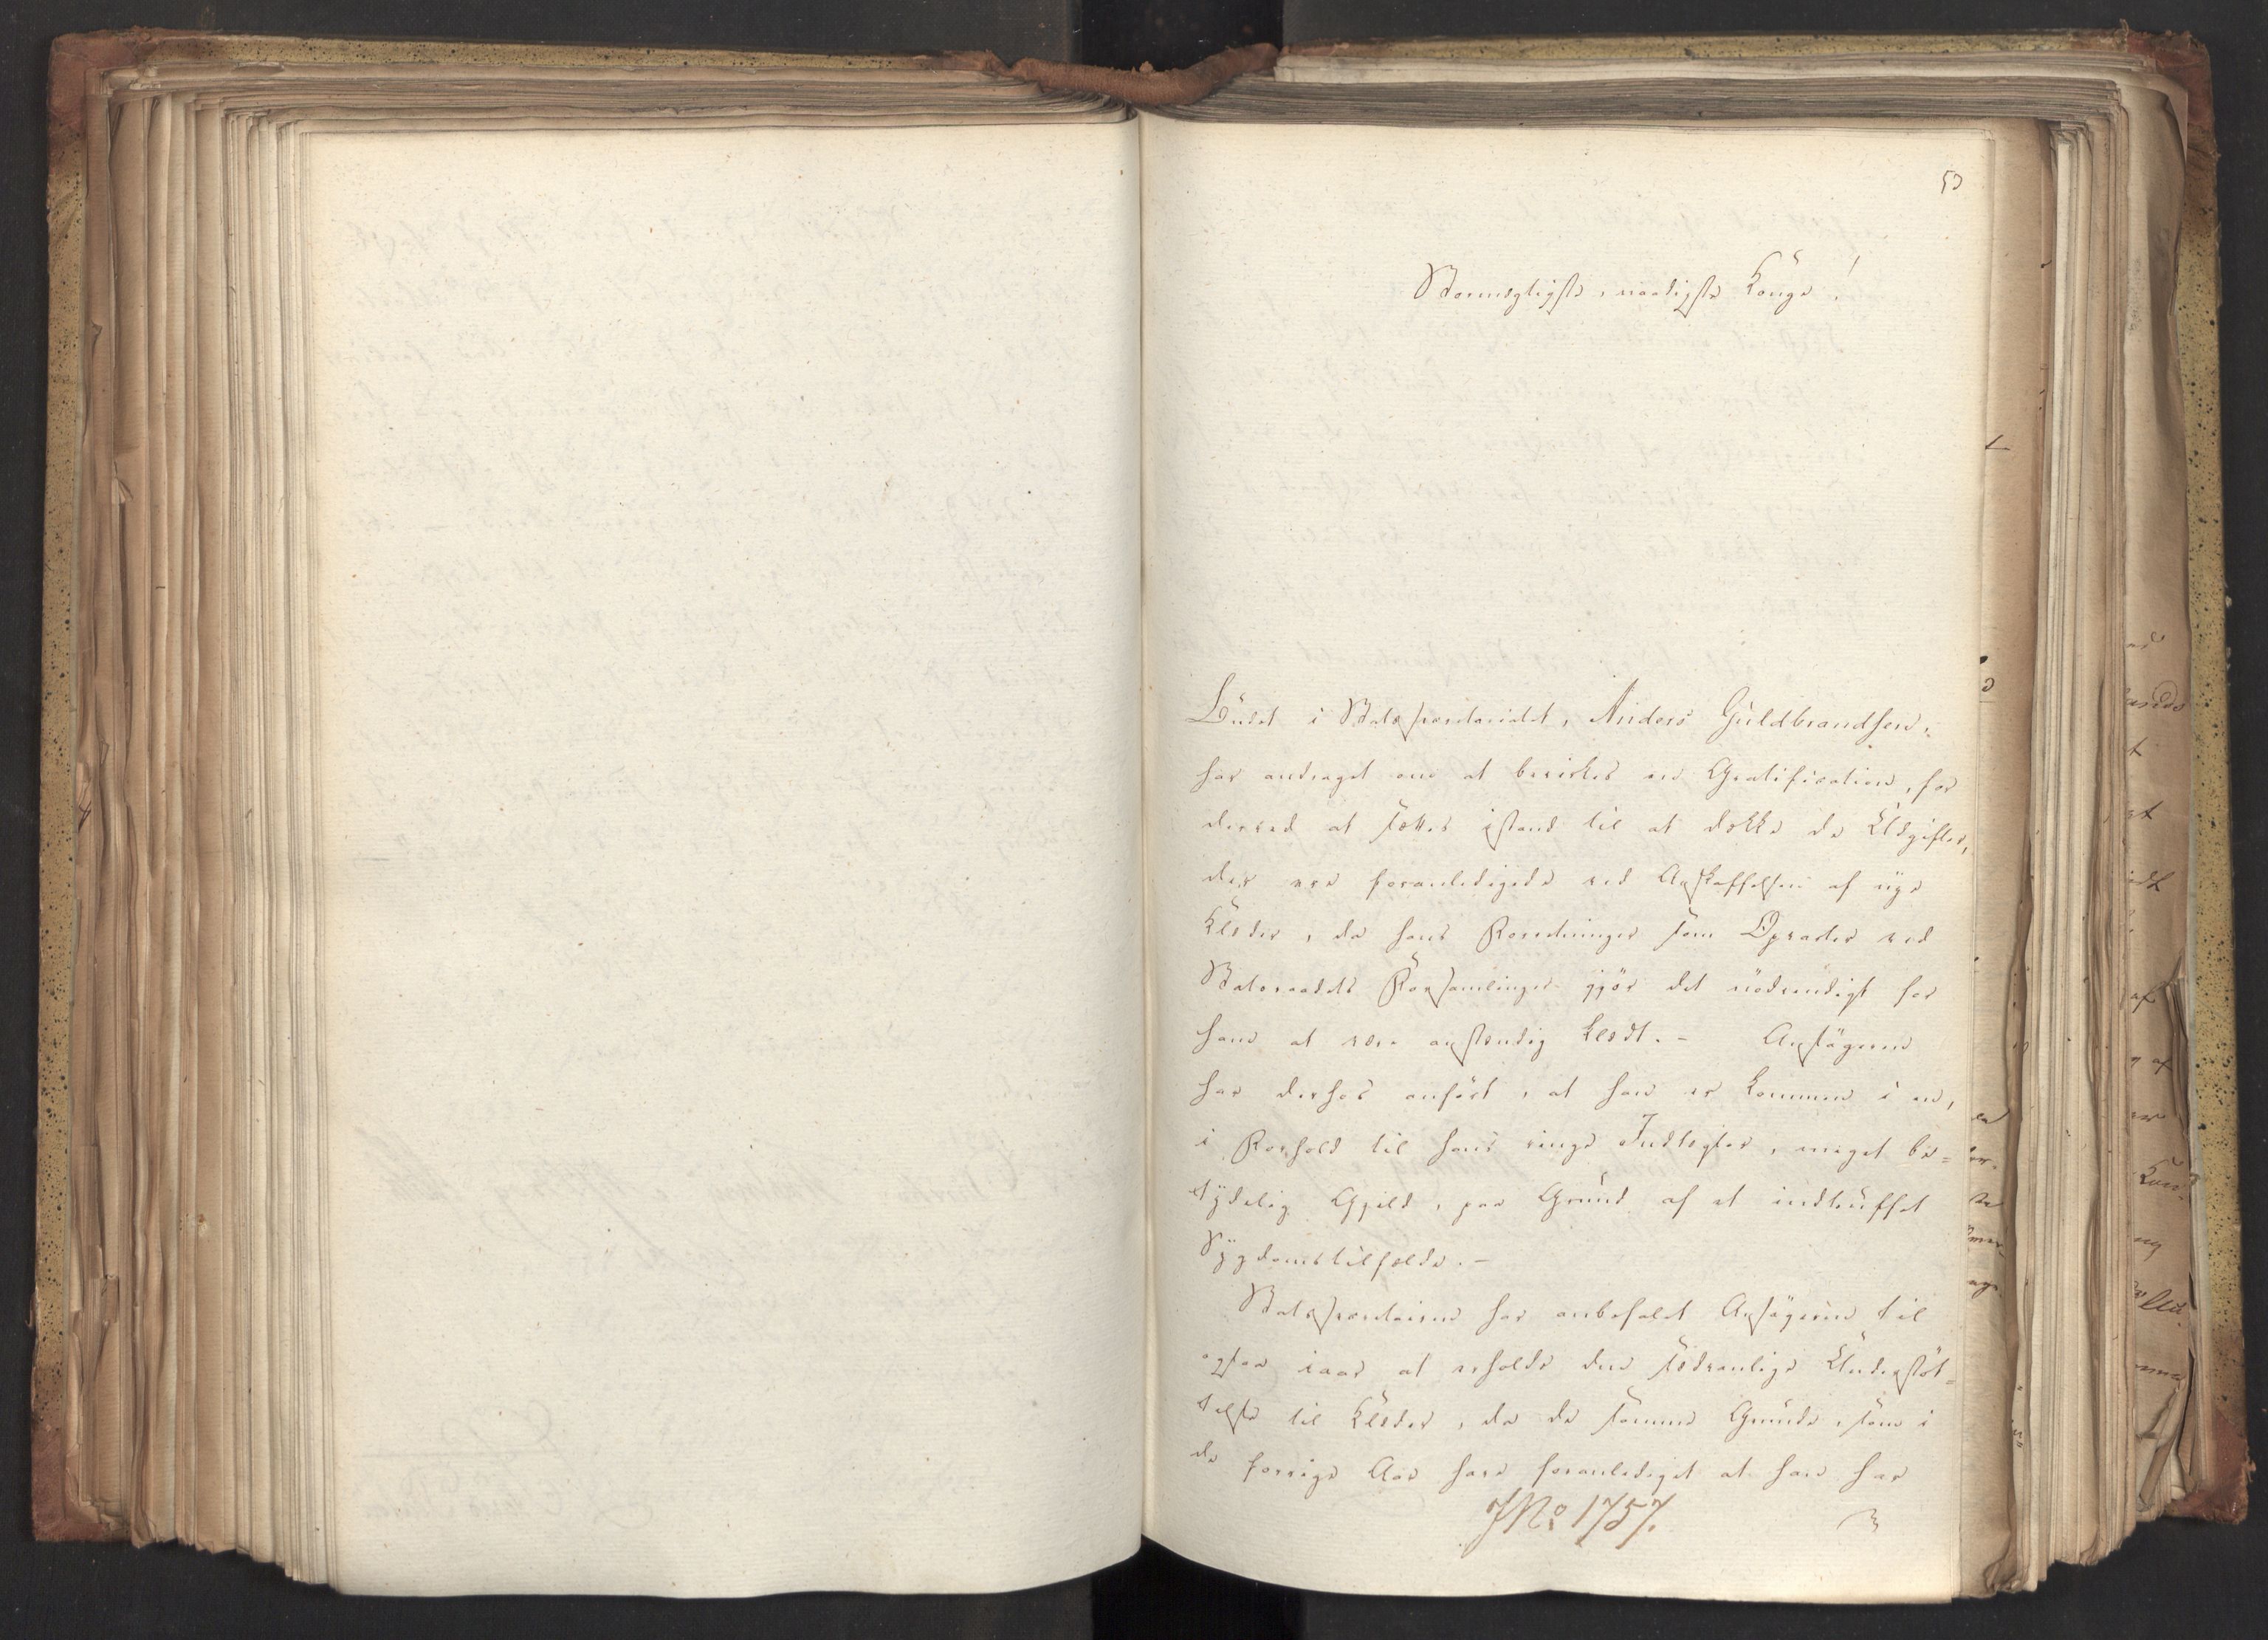 53
Stormægtigste, naadigste Konge!
Budet i Statssecretariatet, Anders Guldbrandsen,
har andraget om at bevirkes en Gratification, for
derved at sættes istand til at dække de Udgifter,
der ere foranledigede ved Anskaffelsen af nye
Klæder, da hans Forretninger som Opvarter ved
Statsraadets Forsamlinger gjör det nödvendigt for
ham at være anstændig klædt. – Ansögeren
har derhos anfört, at han er kommen i en,
i Forhold til hans ringe Indtægter, meget be=
tydelig Gjæld, paa Grund af et indtruffet
Sygdomstilfælde. –
Statssecretairen har anbefalet Ansögeren til
ogsaa iaar at erholde den sædvanlige Understöt=
telse til Klæder, da de samme Grunde, som i
de forrige Aar have foranlediget at han har
JNo 1757.